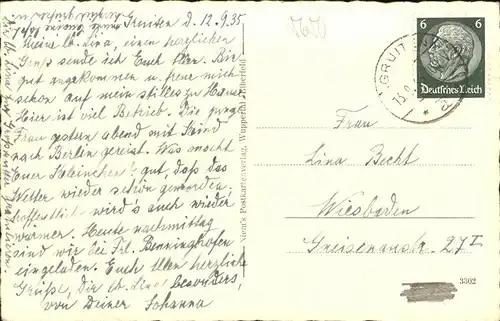 Gruiten d. 12.9.35
Meine lb. Lina, einen herzlichen
Gruß sende ich Euch Allen. Bin
gut angekommen u. freue mich
schon auf mein stilles zu Hause
Hier ist viel Betrieb. Die junge
Frau gestern abend mit Kind
nach Berlin gereist. Was macht
Euer Beinchen? gut, daß das
Wetter wieder schön geworden,
hoffentlich wird's auch wieder
wärmer. Heute nachmittag
sind wir bei Frl. Benninghofen
eingeladen. Euch Allen herzliche
Grüße, Dir lb. Lina besonders,
von Deiner Johanna
Postkartenverlag, Wuppertal-Elberfeld
6 6
Deutsches Reich
GRUITEN
Frau
Lina Becht
Wiesbaden
Gneisenaustr. 27 I
3302